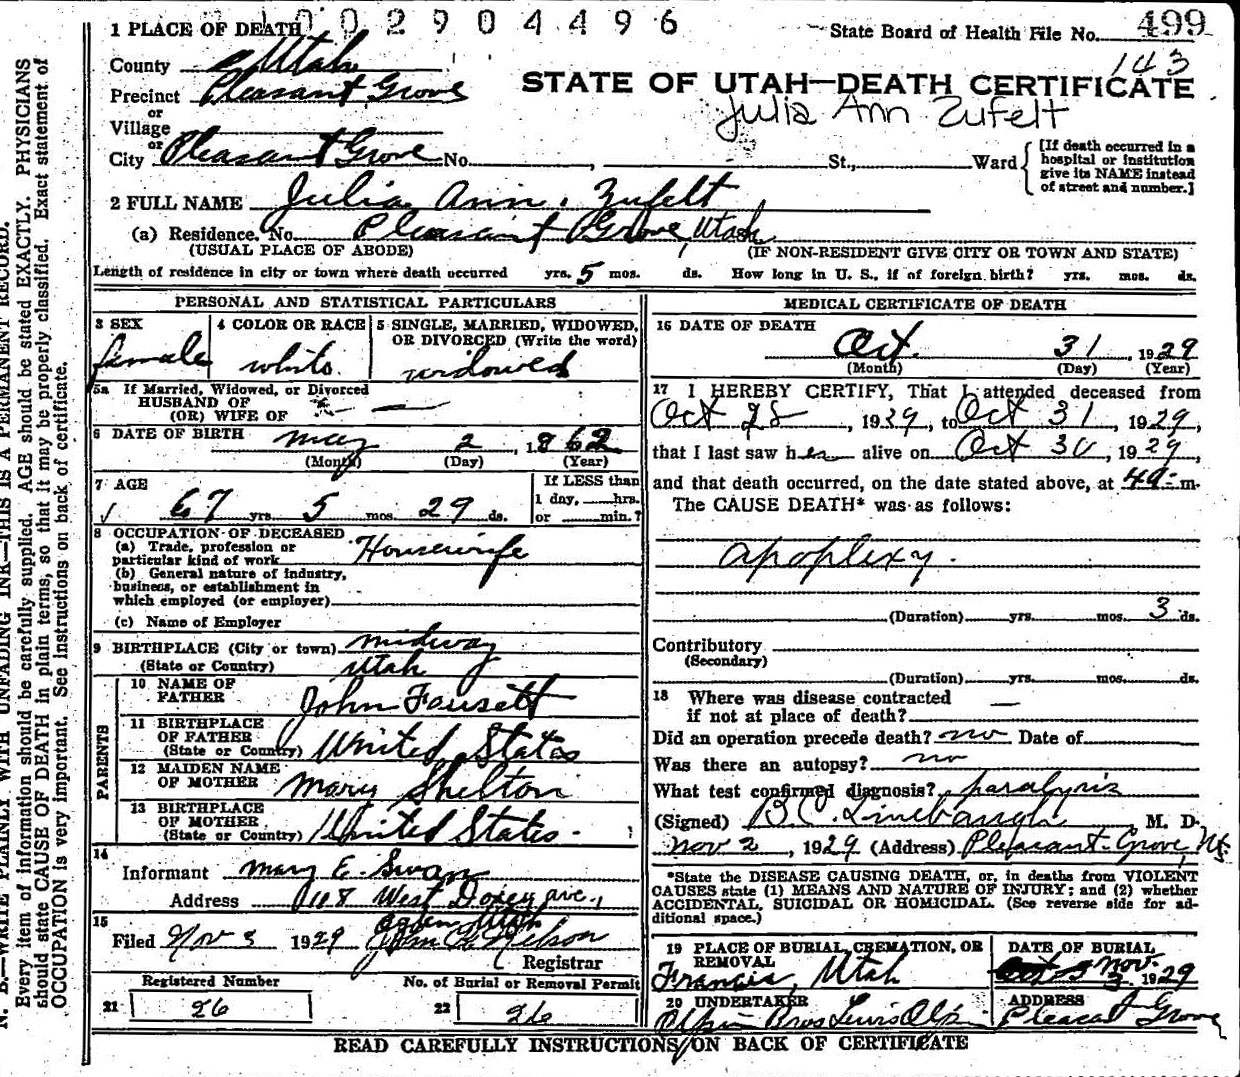 1002904496
State Board of Health File No. 499
143
1 PLACE OF DEATH
County Utah
STATE OF UTAH—DEATH CERTIFICATE
Precinct Pleasant Grove
Julia Ann Zufelt
or
Village
or
City Pleasant Grove No. , St., Ward
[If death occurred in a
hospital or institution
give its NAME instead
of street and number.]
2 FULL NAME Julia Ann Zufelt
(a) Residence. No. Pleasant Grove, Utah
(USUAL PLACE OF ABODE) (IF NON-RESIDENT GIVE CITY OR TOWN AND STATE)
Length of residence in city or town where death occurred yrs. 5 mos. ds. How long in U. S., if of foreign birth? yrs. mos. ds.
PERSONAL AND STATISTICAL PARTICULARS
3 SEX
female
4 COLOR OR RACE
white
5 SINGLE, MARRIED, WIDOWED,
OR DIVORCED (Write the word)
widowed
5a If Married, Widowed, or Divorced
HUSBAND OF
(OR) WIFE OF —
6 DATE OF BIRTH may 2, 1862
(Month) (Day) (Year)
7 AGE
67 yrs. 5 mos. 29 ds.
If LESS than
1 day, hrs.
or min.?
8 OCCUPATION OF DECEASED
(a) Trade, profession or
particular kind of work Housewife
(b) General nature of industry,
business, or establishment in
which employed (or employer)
(c) Name of Employer
9 BIRTHPLACE (City or town) midway
(State or Country) Utah
PARENTS
10 NAME OF
FATHER John Fausett
11 BIRTHPLACE
OF FATHER
(State or Country) United States
12 MAIDEN NAME
OF MOTHER Mary Shelton
13 BIRTHPLACE
OF MOTHER
(State or Country) United States.
14
Informant Mary E. Swan
Address 118 West Doxey ave.,
Ogden Utah
15
Filed Nov 3 1929 Nelson
Registrar
Registered Number
21 26
No. of Burial or Removal Permit
22 26
MEDICAL CERTIFICATE OF DEATH
16 DATE OF DEATH
Oct. 31, 1929
(Month) (Day) (Year)
17 I HEREBY CERTIFY, That I attended deceased from
Oct 28, 1929, to Oct 31, 1929,
that I last saw her alive on Oct 30, 1929,
and that death occurred, on the date stated above, at m.
The CAUSE DEATH* was as follows:
apoplexy.
(Duration) yrs. mos. 3 ds.
Contributory
(Secondary)
(Duration) yrs. mos. ds.
18 Where was disease contracted
if not at place of death? —
Did an operation precede death? no Date of
Was there an autopsy? no
What test confirmed diagnosis? paralysis
(Signed) B.C. Linebaugh, M. D.
Nov 2, 1929 (Address) Pleasant Grove, Ut.
*State the DISEASE CAUSING DEATH, or, in deaths from VIOLENT
CAUSES state (1) MEANS AND NATURE OF INJURY; and (2) whether
ACCIDENTAL, SUICIDAL OR HOMICIDAL. (See reverse side for ad-
ditional space.)
19 PLACE OF BURIAL, CREMATION, OR
REMOVAL
Francis, Utah
DATE OF BURIAL
Nov.
3, 1929
20 UNDERTAKER
Olpin Bros Lewis Olpin
ADDRESS
Pleasant Grove
READ CAREFULLY INSTRUCTIONS ON BACK OF CERTIFICATE
N. B.—WRITE PLAINLY WITH UNFADING INK—THIS IS A PERMANENT RECORD.
Every item of information should be carefully supplied. AGE should be stated EXACTLY. PHYSICIANS
should state CAUSE OF DEATH in plain terms, so that it may be properly classified. Exact statement of
OCCUPATION is very important. See instructions on back of certificate.